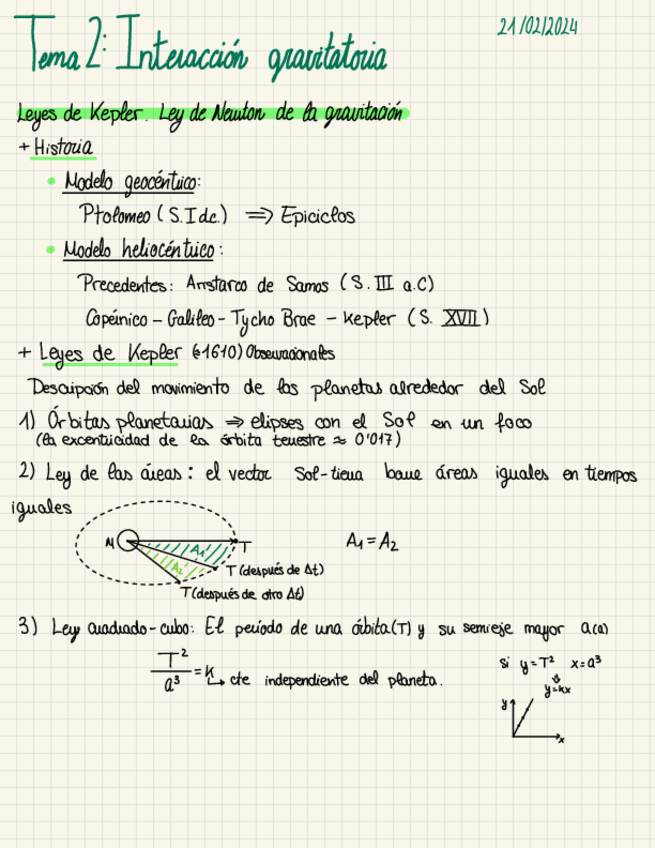 21/02/2024
Tema 2: Interacción gravitatoria
Leyes de Kepler. Ley de Newton de la gravitación
+ Historia
• Modelo geocéntrico:
Ptolomeo (S.I d.c.) ⇒ Epiciclos
• Modelo heliocéntrico:
Precedentes: Aristarco de Samos (S. III a.C)
Copérnico - Galileo - Tycho Brae - Kepler (S. XVII)
+ Leyes de Kepler (1610) Observacionales
Descripción del movimiento de los planetas alrededor del Sol
1) Órbitas planetarias ⇒ elipses con el Sol en un foco
(la excentricidad de la órbita terrestre ≈ 0'017)
2) Ley de las áreas: el vector Sol-tierra barre áreas iguales en tiempos
iguales
M A₁ T A₁ = A₂
A₂ T (después de Δt)
T (después de otro Δt)
3) Ley cuadrado-cubo: El período de una órbita (T) y su semieje mayor a(a)
T²/a³ = K → cte independiente del planeta.
si y=T² x=a³
⇓
y=kx
y
x